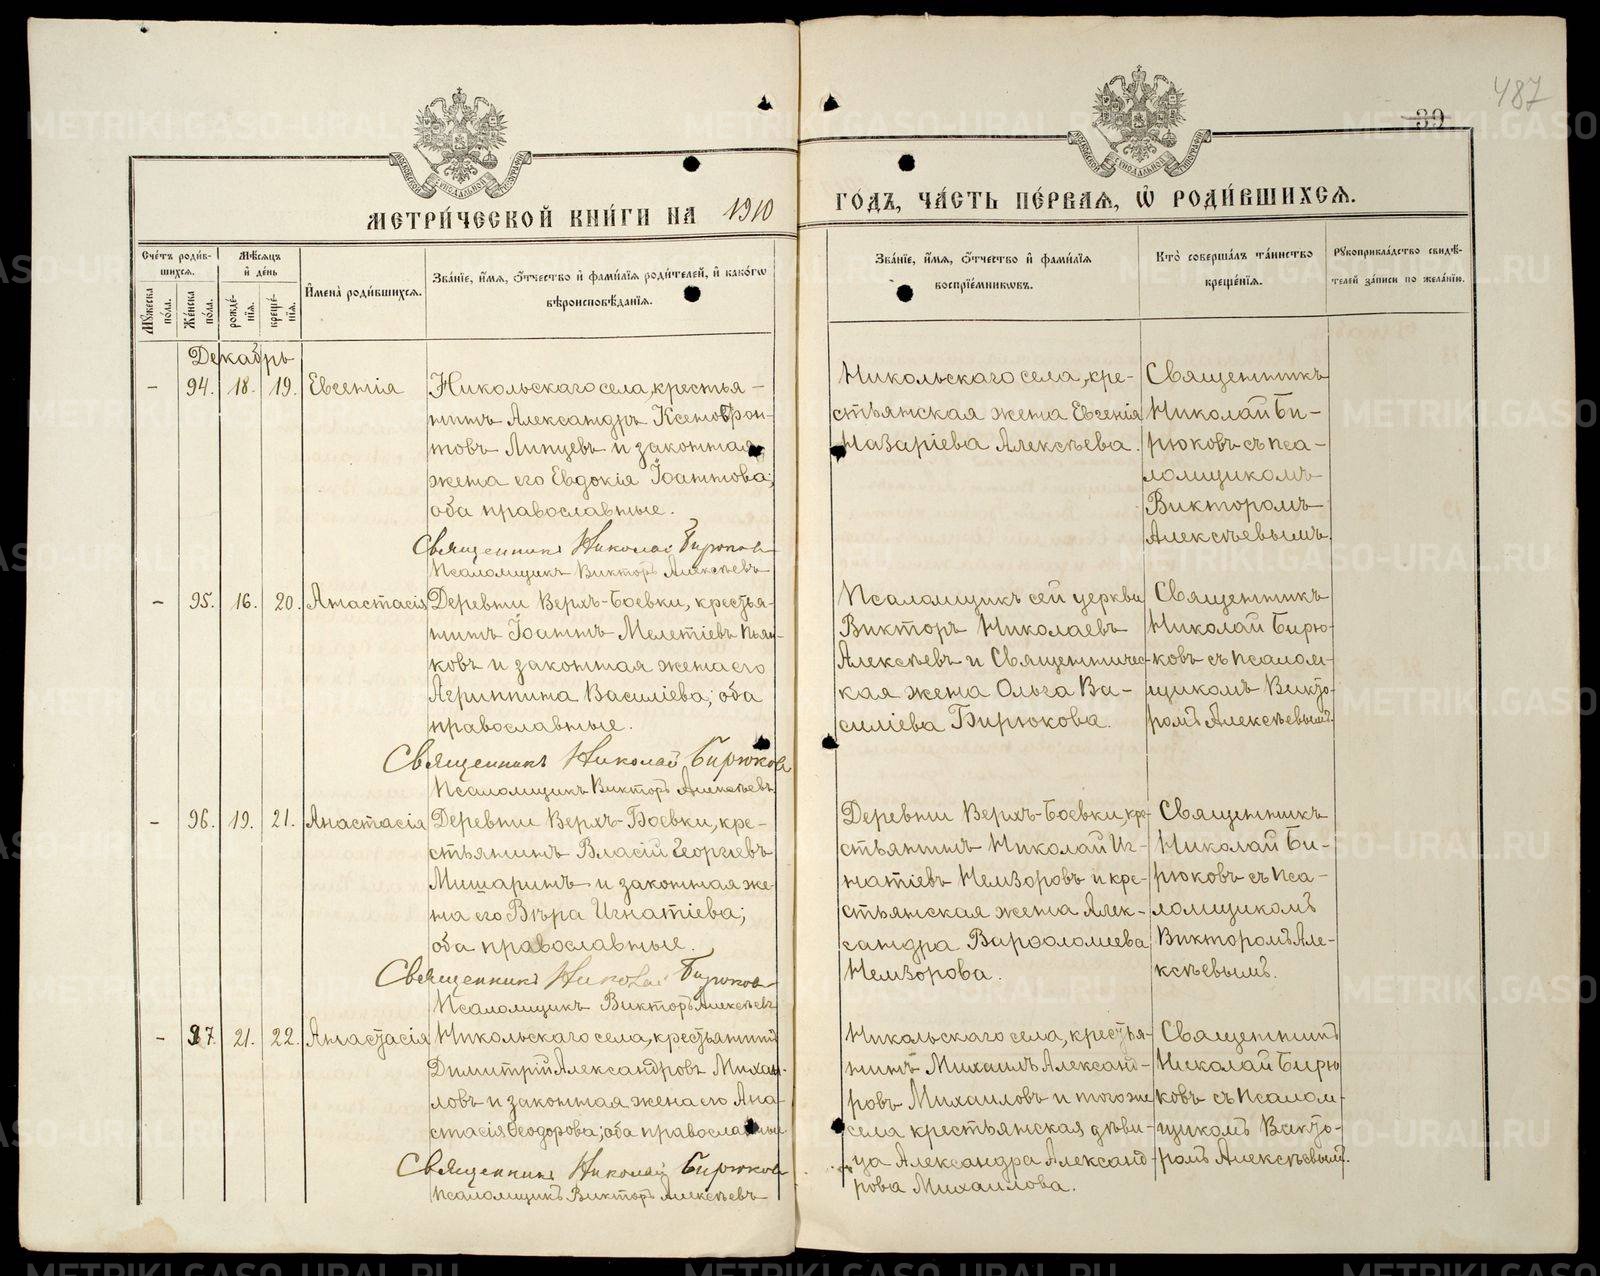 487
39
МЕТРИ́ЧЕСКОЙ КНИ́ГИ НА 1910
ГО́ДЪ, ЧА́СТЬ ПЕ́РВАѦ, Ѽ РОДИ́ВШИХСѦ.
Сче́тъ роди́в-
шихся.
Мѣ́сяцъ
и҆ де́нь
Му́жеска по́ла.
Же́нска по́ла.
рожде́-
нїѧ.
креще́-
нїѧ.
И҆мена̀ роди́вшихся.
Зва́нїе, и҆́мѧ, ѻ҆́тчество и҆ фами́лїѧ роди́телей, и҆ како́гѡ
вѣроисповѣ́данїѧ.
Зва́нїе, и҆́мѧ, ѻ҆́тчество и҆ фами́лїѧ
воспрїе́мникѡвъ.
Кто̀ соверша́лъ та́инство
креще́нїѧ.
Рꙋкоприкла́дство свидѣ́-
телей за́писи по жела́нїю.
Декабрь
- 94. 18. 19. Евгенія
Никольскаго села, крестья-
нинъ Александръ Ксенофон-
товъ Липцевъ и законная
жена его Евдокія Іоаннова;
оба православные.
Священникъ Николай Бирюковъ
Псаломщикъ Викторъ Алексѣевъ
Никольскаго села, кре-
стьянская жена Евгенія
Назаріева Алексѣева.
Священникъ
Николай Би-
рюковъ съ пса-
ломщикомъ
Викторомъ
Алексѣевымъ.
- 95. 16. 20. Анастасія
Деревни Верхъ-Боевки, крестья-
нинъ Іоаннъ Мелетіевъ Пьян-
ковъ и законная жена его
Агриппина Василіева; оба
православные.
Священникъ Николай Бирюковъ
Псаломщикъ Викторъ Алексѣевъ
Псаломщикъ сей церкви
Викторъ Николаевъ
Алексѣевъ и Священничес-
кая жена Ольга Ва-
силіева Бирюкова.
Священникъ
Николай Бирю-
ковъ съ псалом-
щикомъ Викто-
ромъ Алексѣевымъ.
- 96. 19. 21. Анастасія
Деревни Верхъ-Боевки, кре-
стьянинъ Власій Георгіевъ
Мишаринъ и законная же-
на его Вѣра Игнатіева;
оба православные.
Священникъ Николай Бирюковъ
Псаломщикъ Викторъ Алексѣевъ
Деревни Верхъ-Боевки, кре-
стьянинъ Николай Иг-
натіевъ Немзоровъ и кре-
стьянская жена Алек-
сандра Варѳоломиева
Немзорова.
Священникъ
Николай Би-
рюковъ съ пса-
ломщикомъ
Викторомъ Але-
ксѣевымъ.
- 97. 21. 22. Анастасія
Никольскаго села, крестьянинъ
Димитрій Александровъ Михаи-
ловъ и законная жена его Ана-
стасія Ѳеодорова; оба православные
Священникъ Николай Бирюковъ
Псаломщикъ Викторъ Алексѣевъ
Никольскаго села, крестья-
нинъ Михаилъ Александ-
ровъ Михаиловъ и того же
села крестьянская дѣви-
ца Александра Александ-
рова Михаилова.
Священникъ
Николай Бирю
ковъ съ псалом-
щикомъ Викто-
ромъ Алексѣевым.